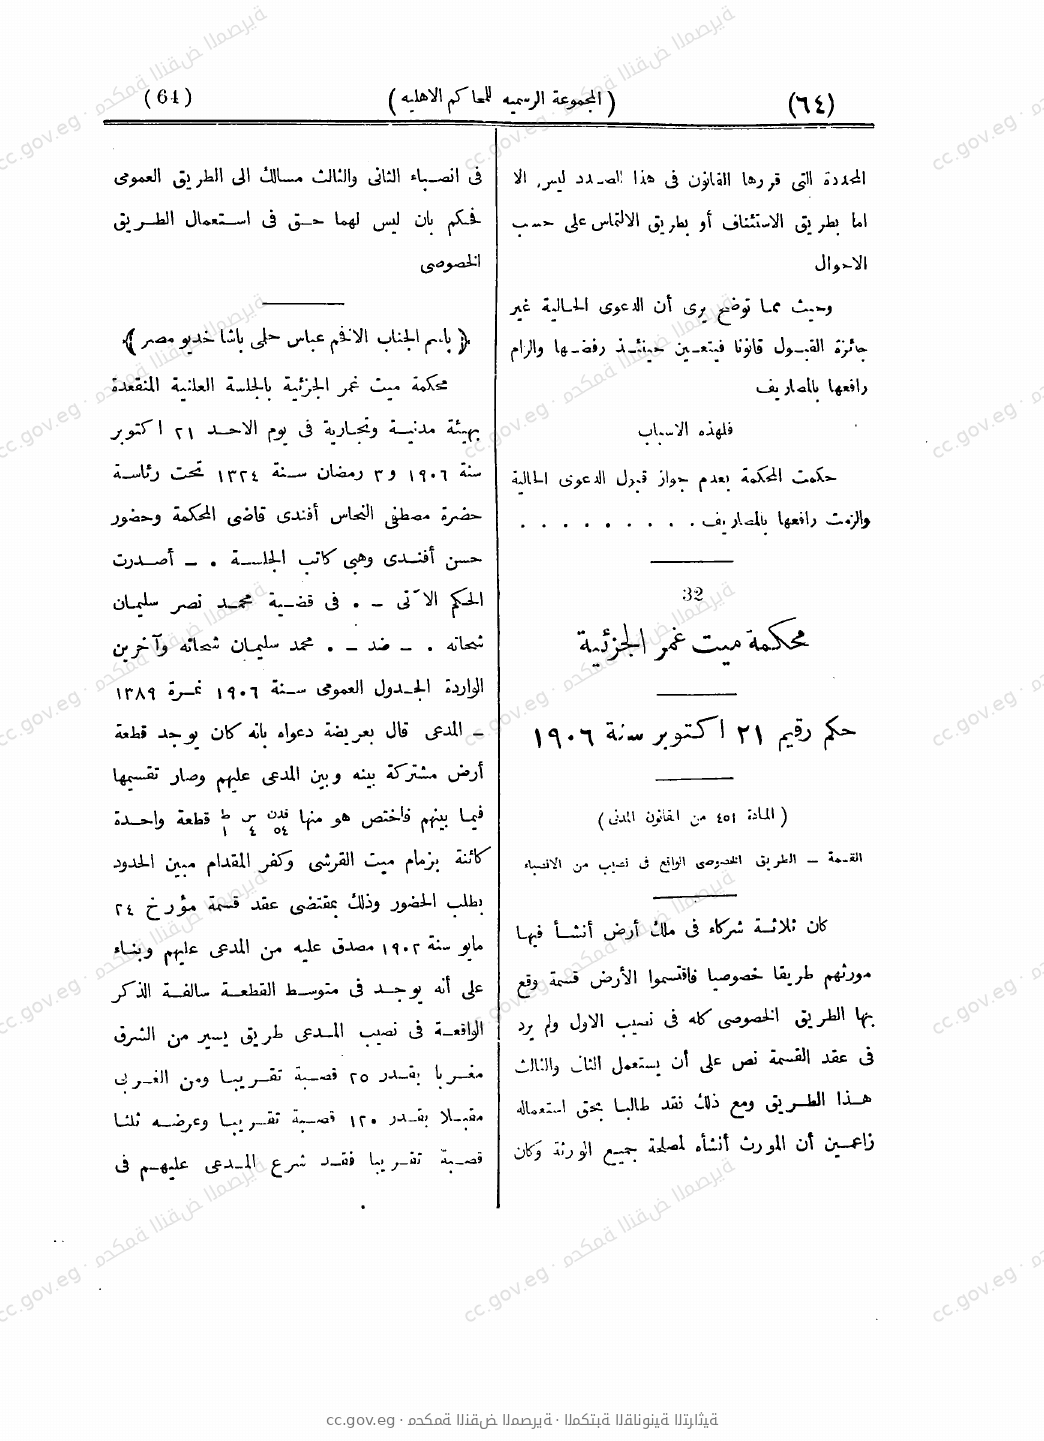 (٦٤) (المجموعة الرسميه للمحاكم الاهليه) (64)
المحددة التى قررها القانون فى هذا الصدد ليس الا
اما بطريق الاستئناف أو بطريق الالتماس على حسب
الاحوال
وحيث مما توضح يرى أن الدعوى الحالية غير
جائزة القبول قانونا فيتعين حينئذ رفضها والزام
رافعها بالمصاريف
فلهذه الاسباب
حكمت المحكمة بعدم جواز قبول الدعوى الحالية
والزمت رافعها بالمصاريف . . . . . . . . .
32
محكمة ميت غمر الجزئية
حكم رقيم ٢١ اكتوبر سنة ١٩٠٦
(المادة ٤٥١ من القانون المدنى)
القسمة ــ الطريق الخصوصى الواقع فى نصيب من الانصباء
كان ثلاثة شركاء فى ملك أرض أنشأ فيها
مورثهم طريقا خصوصيا فاقتسموا الأرض قسمة وقع
بها الطريق الخصوصى كله فى نصيب الاول ولم يرد
فى عقد القسمة نص على أن يستعمل الثانى والثالث
هذا الطريق ومع ذلك فقد طالبا بحق استعماله
زاعمين أن المورث أنشأه لمصلحة جميع الورثة وكان
فى انصباء الثانى والثالث مسالك الى الطريق العمومى
فحكم بان ليس لهما حق فى استعمال الطريق
الخصوصى
﴿باسم الجناب الافخم عباس حلمى باشا خديو مصر﴾
محكمة ميت غمر الجزئية بالجلسة العلنية المنعقدة
بهيئة مدنية وتجارية فى يوم الاحد ٢١ اكتوبر
سنة ١٩٠٦ و ٣ رمضان سنة ١٣٢٤ تحت رئاسة
حضرة مصطفى النحاس أفندى قاضى المحكمة وحضور
حسن أفندى وهبى كاتب الجلسة . ــ أصدرت
الحكم الآتى ــ . فى قضية محمد نصر سليمان
شحاته . ــ ضد ــ . محمد سليمان شحاته وآخرين
الواردة الجدول العمومى سنة ١٩٠٦ نمرة ١٣٨٩
ــ المدعى قال بعريضة دعواه بانه كان يوجد قطعة
أرض مشتركة بينه وبين المدعى عليهم وصار تقسيمها
فيما بينهم فاختص هو منها فدن ٥٤ س ٤ ط ١ قطعة واحدة
كائنة بزمام ميت القرشى وكفر المقدام مبين الحدود
بطلب الحضور وذلك بمقتضى عقد قسمة مؤرخ ٢٤
مايو سنة ١٩٠٢ مصدق عليه من المدعى عليهم وبناء
على أنه يوجد فى متوسط القطعة سالفة الذكر
الواقعة فى نصيب المدعى طريق يسير من الشرق
مغربا بقدر ٢٥ قصبة تقريبا ومن الغربى
مقبلا بقدر ١٢٠ قصبة تقريبا وعرضه ثلثا
قصبة تقريبا فقد شرع المدعى عليهم فى
cc.gov.eg · محكمة النقض المصرية · المكتبة القانونية التراثية